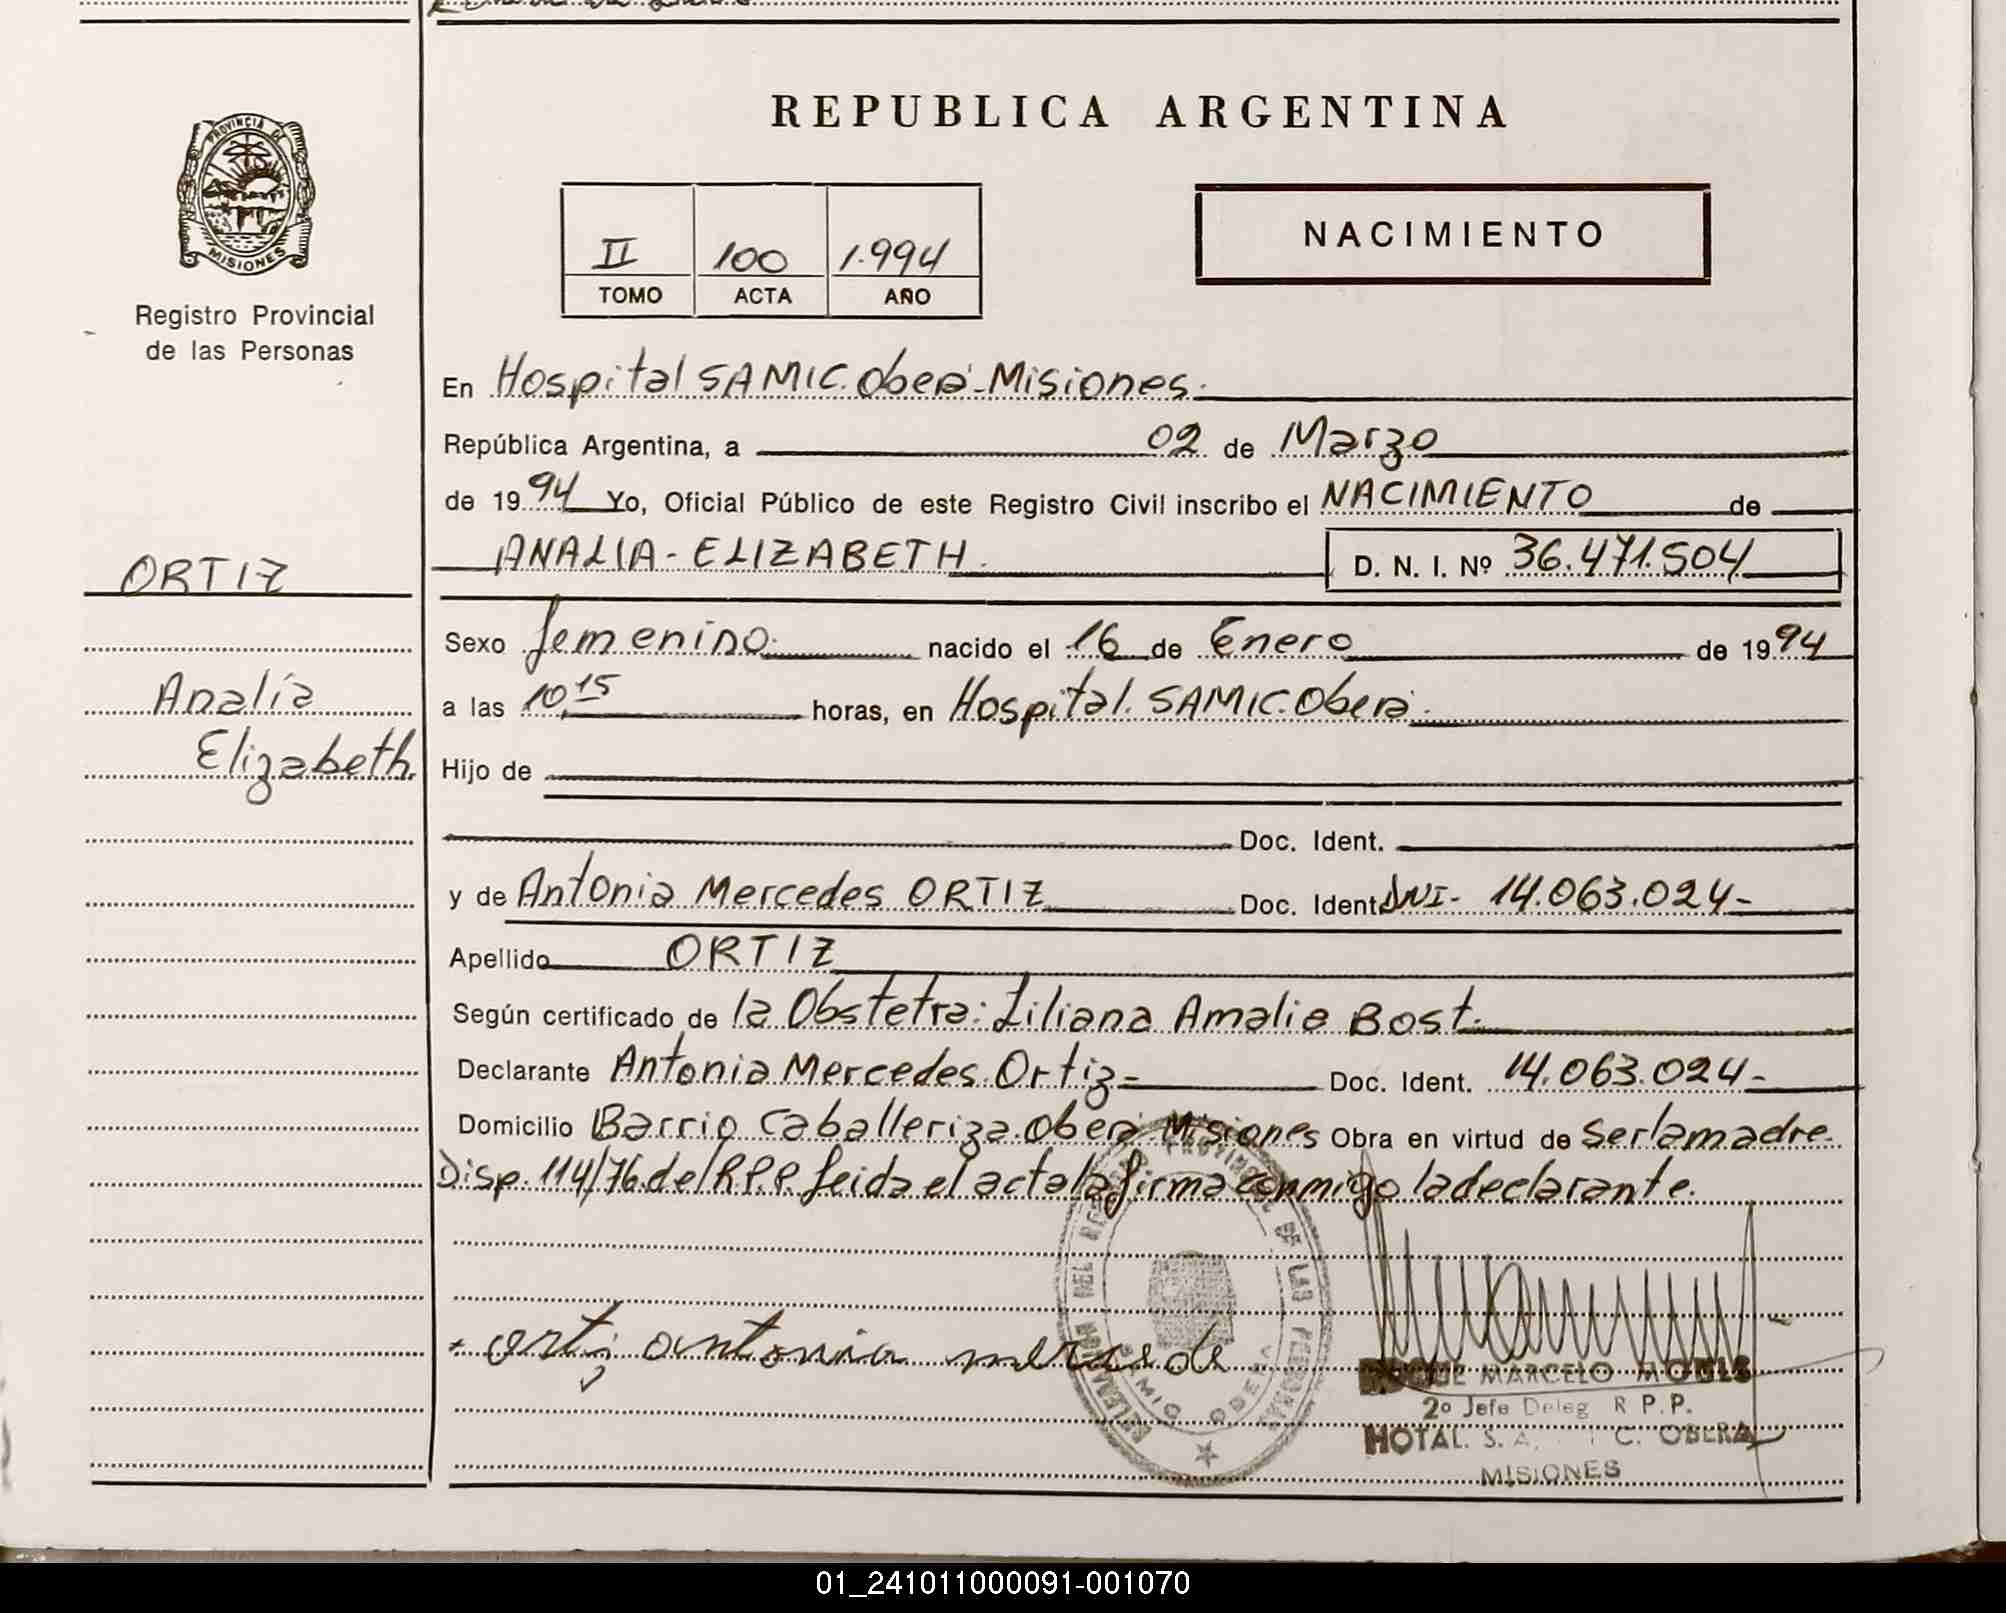 REPUBLICA ARGENTINA
PROVINCIA DE
MISIONES
Registro Provincial
de las Personas
II 100 1.994
TOMO ACTA AÑO
NACIMIENTO
En Hospital SAMIC. Oberá-Misiones.
República Argentina, a 02 de Marzo
de 1994 Yo, Oficial Público de este Registro Civil inscribo el NACIMIENTO de
ANALIA-ELIZABETH. D. N. I. Nº 36.471.504
ORTIZ
Analía
Elizabeth.
Sexo femenino. nacido el 16 de Enero de 1994
a las 10,15 horas, en Hospital. SAMIC. Oberá.
Hijo de
Doc. Ident.
y de Antonia Mercedes ORTIZ Doc. Ident. DNI- 14.063.024-
Apellido ORTIZ
Según certificado de la Obstetra: Liliana Amalia Bost.
Declarante Antonia Mercedes Ortiz= Doc. Ident. 14.063.024-
Domicilio Barrio Caballeriza. Oberá-Misiones Obra en virtud de Ser la madre-
Disp. 114/76. del R.P.P. Leida el acta la firma conmigo la declarante.
orti antonia mercede
MARCELO
2º Jefe Deleg R P.P.
HOTAL. S. A. C. OBERA
MISIONES
01_241011000091-001070